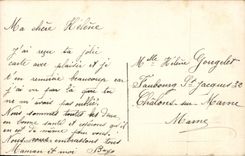 Ma chère Hélène
J'ai reçu ta jolie
carte avec plaisir et je
t'en remercie beaucoup car
j'ai vu par là que tu
ne m'avais pas oubliée.
Nous sommes toutes les deux
en bonne santé et espérons qu'il
en est de même pour vous.
Nous vous embrassons tous
Maman et moi
Melle Hélène Gougelet
Faubourg St Jacques 32
Châlons sur Marne
Marne